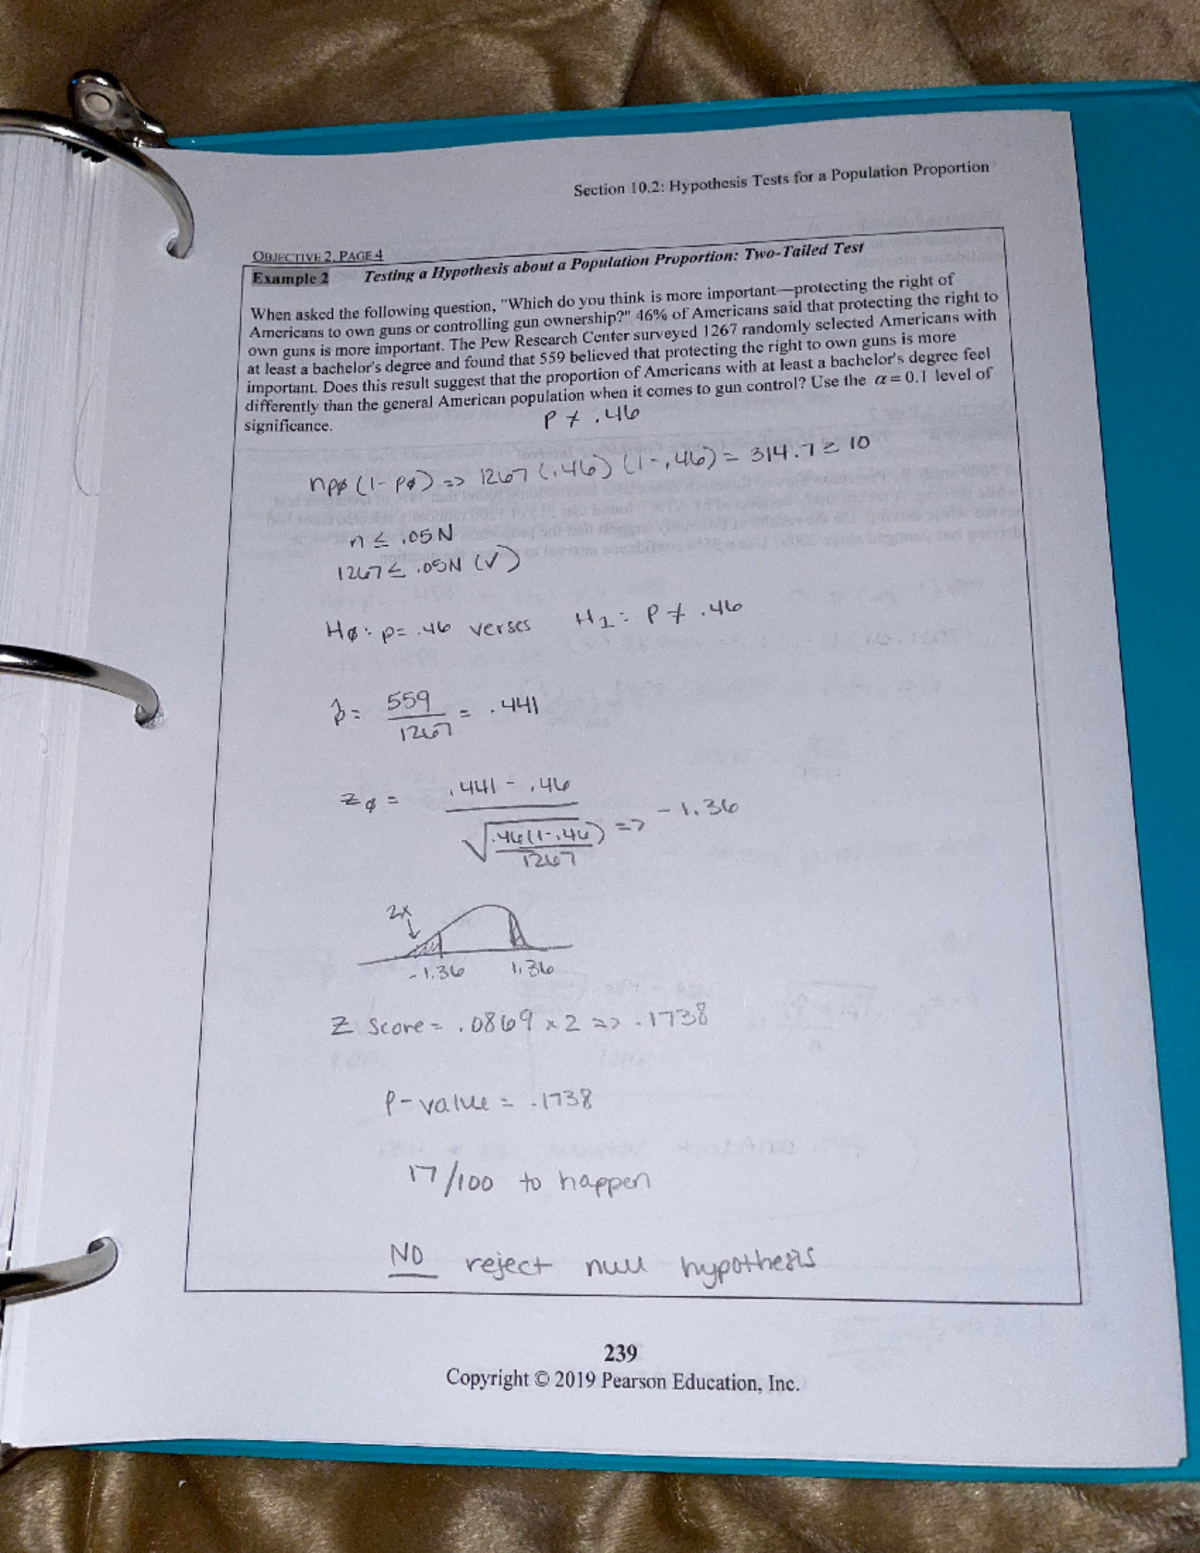 Section 10.2: Hypothesis Tests for a Population Proportion
OBJECTIVE 2, PAGE 4
Example 2 Testing a Hypothesis about a Population Proportion: Two-Tailed Test
When asked the following question, "Which do you think is more important—protecting the right of
Americans to own guns or controlling gun ownership?" 46% of Americans said that protecting the right to
own guns is more important. The Pew Research Center surveyed 1267 randomly selected Americans with
at least a bachelor's degree and found that 559 believed that protecting the right to own guns is more
important. Does this result suggest that the proportion of Americans with at least a bachelor's degree feel
differently than the general American population when it comes to gun control? Use the α = 0.1 level of
significance.
P ≠ .46
npø (1-pø) => 1267 (.46) (1-.46) = 314.7 ≥ 10
n ≤ .05N
1267 ≤ .05N (✓)
Hø: p= .46 verses H1: P ≠ .46
p̂ = 559/1267 = .441
zø = .441 - .46 / √.46(1-.46)/1267 => -1.36
2x
-1.36 1.36
Z score = .0869 x 2 => .1738
P-value = .1738
17/100 to happen
NO reject null hypothesis
239
Copyright © 2019 Pearson Education, Inc.